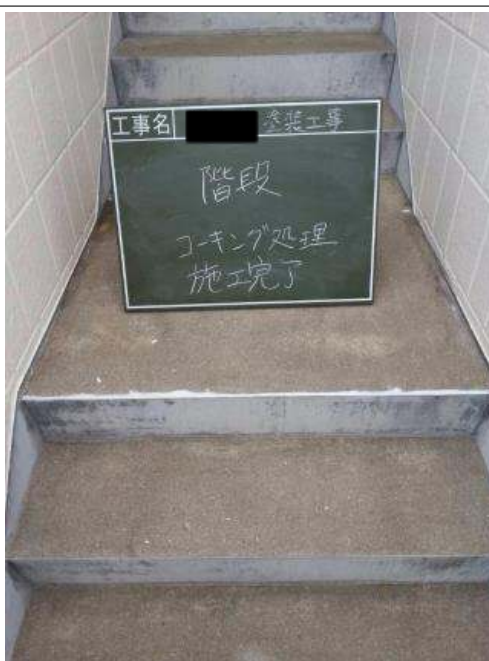 工事名 塗装工事
階段
コーキング処理
施工完了